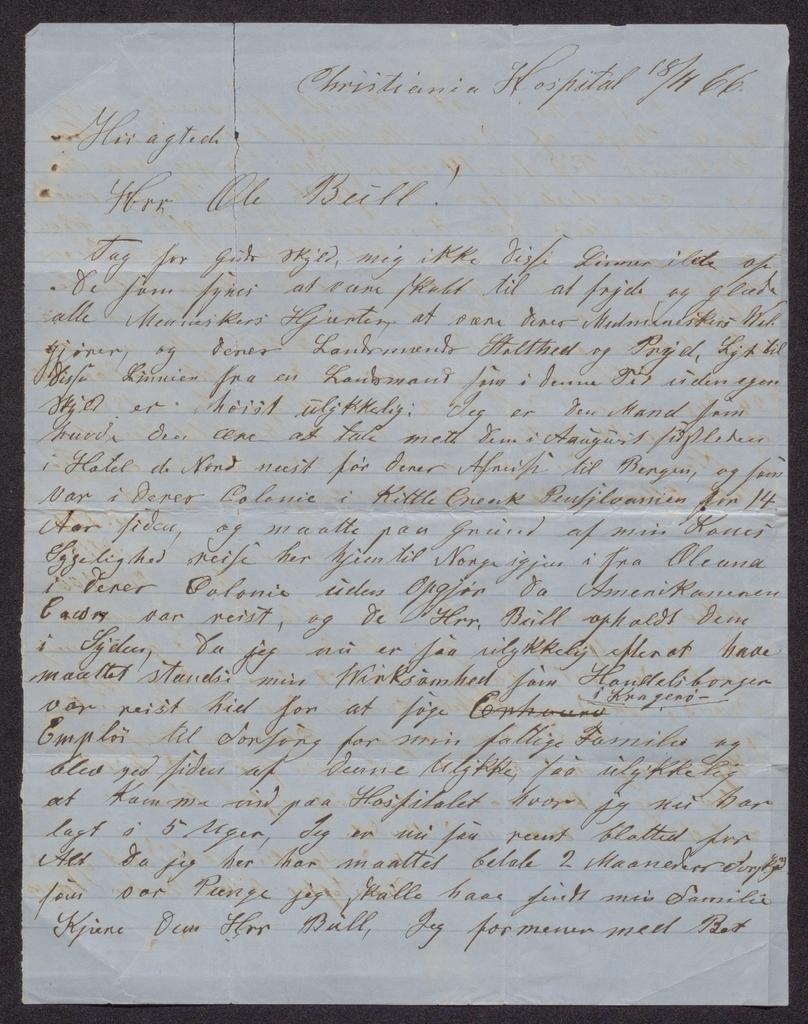 Christiania Hospital 18/4 66.
Høiagtede
Herr Ole Bull!
Tag for Guds skyld, mig ikke disse Linner ilde op
De som synes at være skabt til at fryde og glæde
alle Menneskers Hjerter, at være deres Medmenniskers Vel
gjører, og deres Landsmænds Stolthed og Pryd, Lyt til
disse Linnier fra en Landsmand som i denne Tid uden egen
Skyld er høist ulykkelig. Jeg er den Mand som
havde den ære at tale mett Dem i Auugust sidstleden
i Hotel du Nord næst før deres Afreise til Bergen, og som
var i deres Colonie i Kittle Creek Pensilvanien for 14
Aar siden, og maatte paa Grund af min Kones
Sygelighed reise her hjem til Norge igjen i fra Oleana
i deres Colonie uden Opgjør da Amerikaneren
var reist, og De Hrr. Bull opholdt Dem
i Syden, Da jeg nu er saa ulykkelig efter at have
maattet standse min Wirksomhed som Handelsborger
i Kragerø
var reist hid for at søge
Emploi til Forsørg for min fattige Familie og
blev ved siden af denne Ulykke saa ulykkelig
at komme ind paa Hospitalet hvor jeg nu har
lagt i 5 Uger, Jeg er nu saa reent blottet for
Alt da jeg her har maattet betale 2 Maaneders
som var Penge jeg skulle have sendt min Familie
Kjære Dem Hrr Bull, Jeg formener med Bet